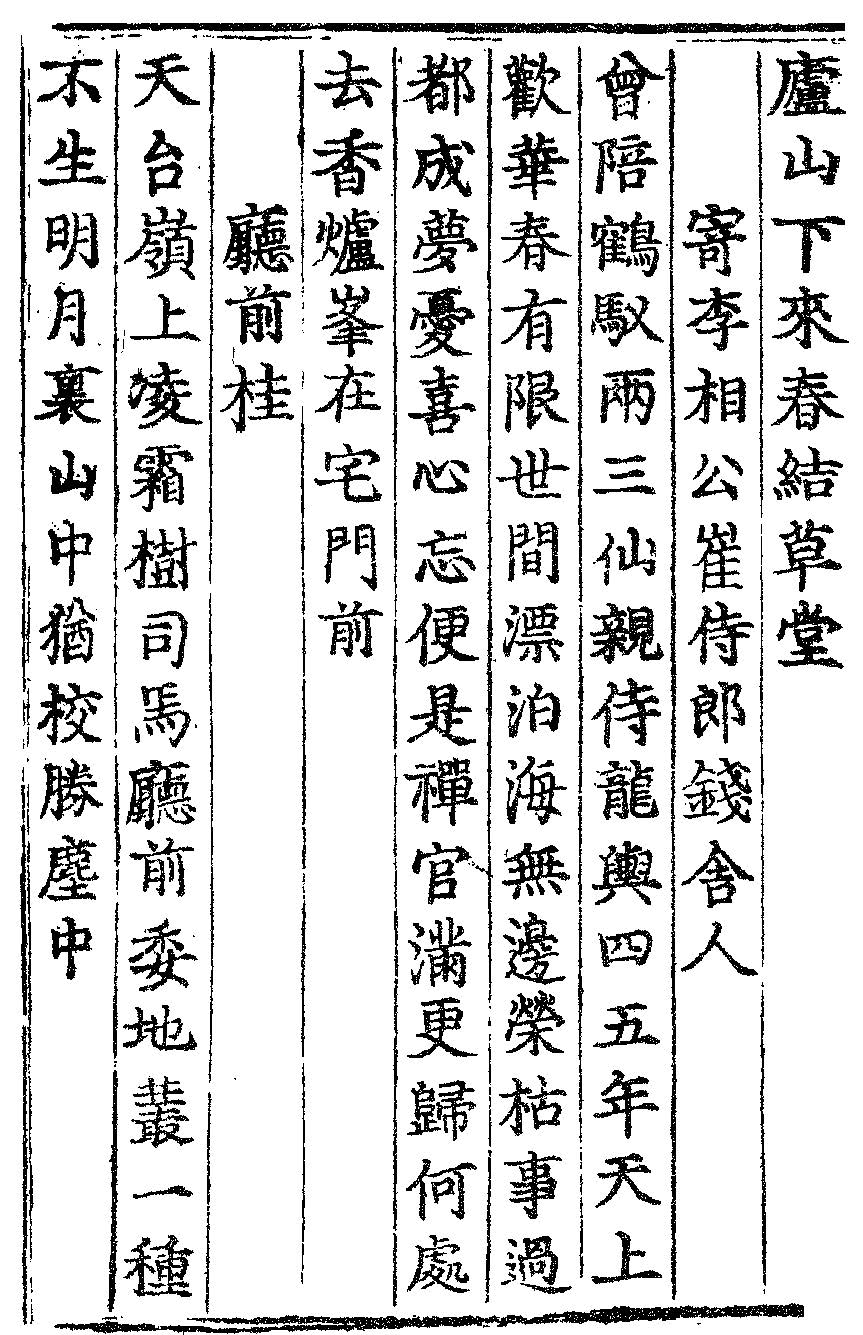 廬山下來春結草堂
寄李相公崔侍郎錢舍人
曾陪鶴馭兩三仙親侍龍輿四五年天上
歡華春有限世間漂泊海無邊榮枯事過
都成夢憂喜心忘便是禪官滿更歸何處
去香爐峯在宅門前
廳前桂
天台嶺上凌霜樹司馬廳前委地叢一種
不生明月裏山中猶校勝塵中